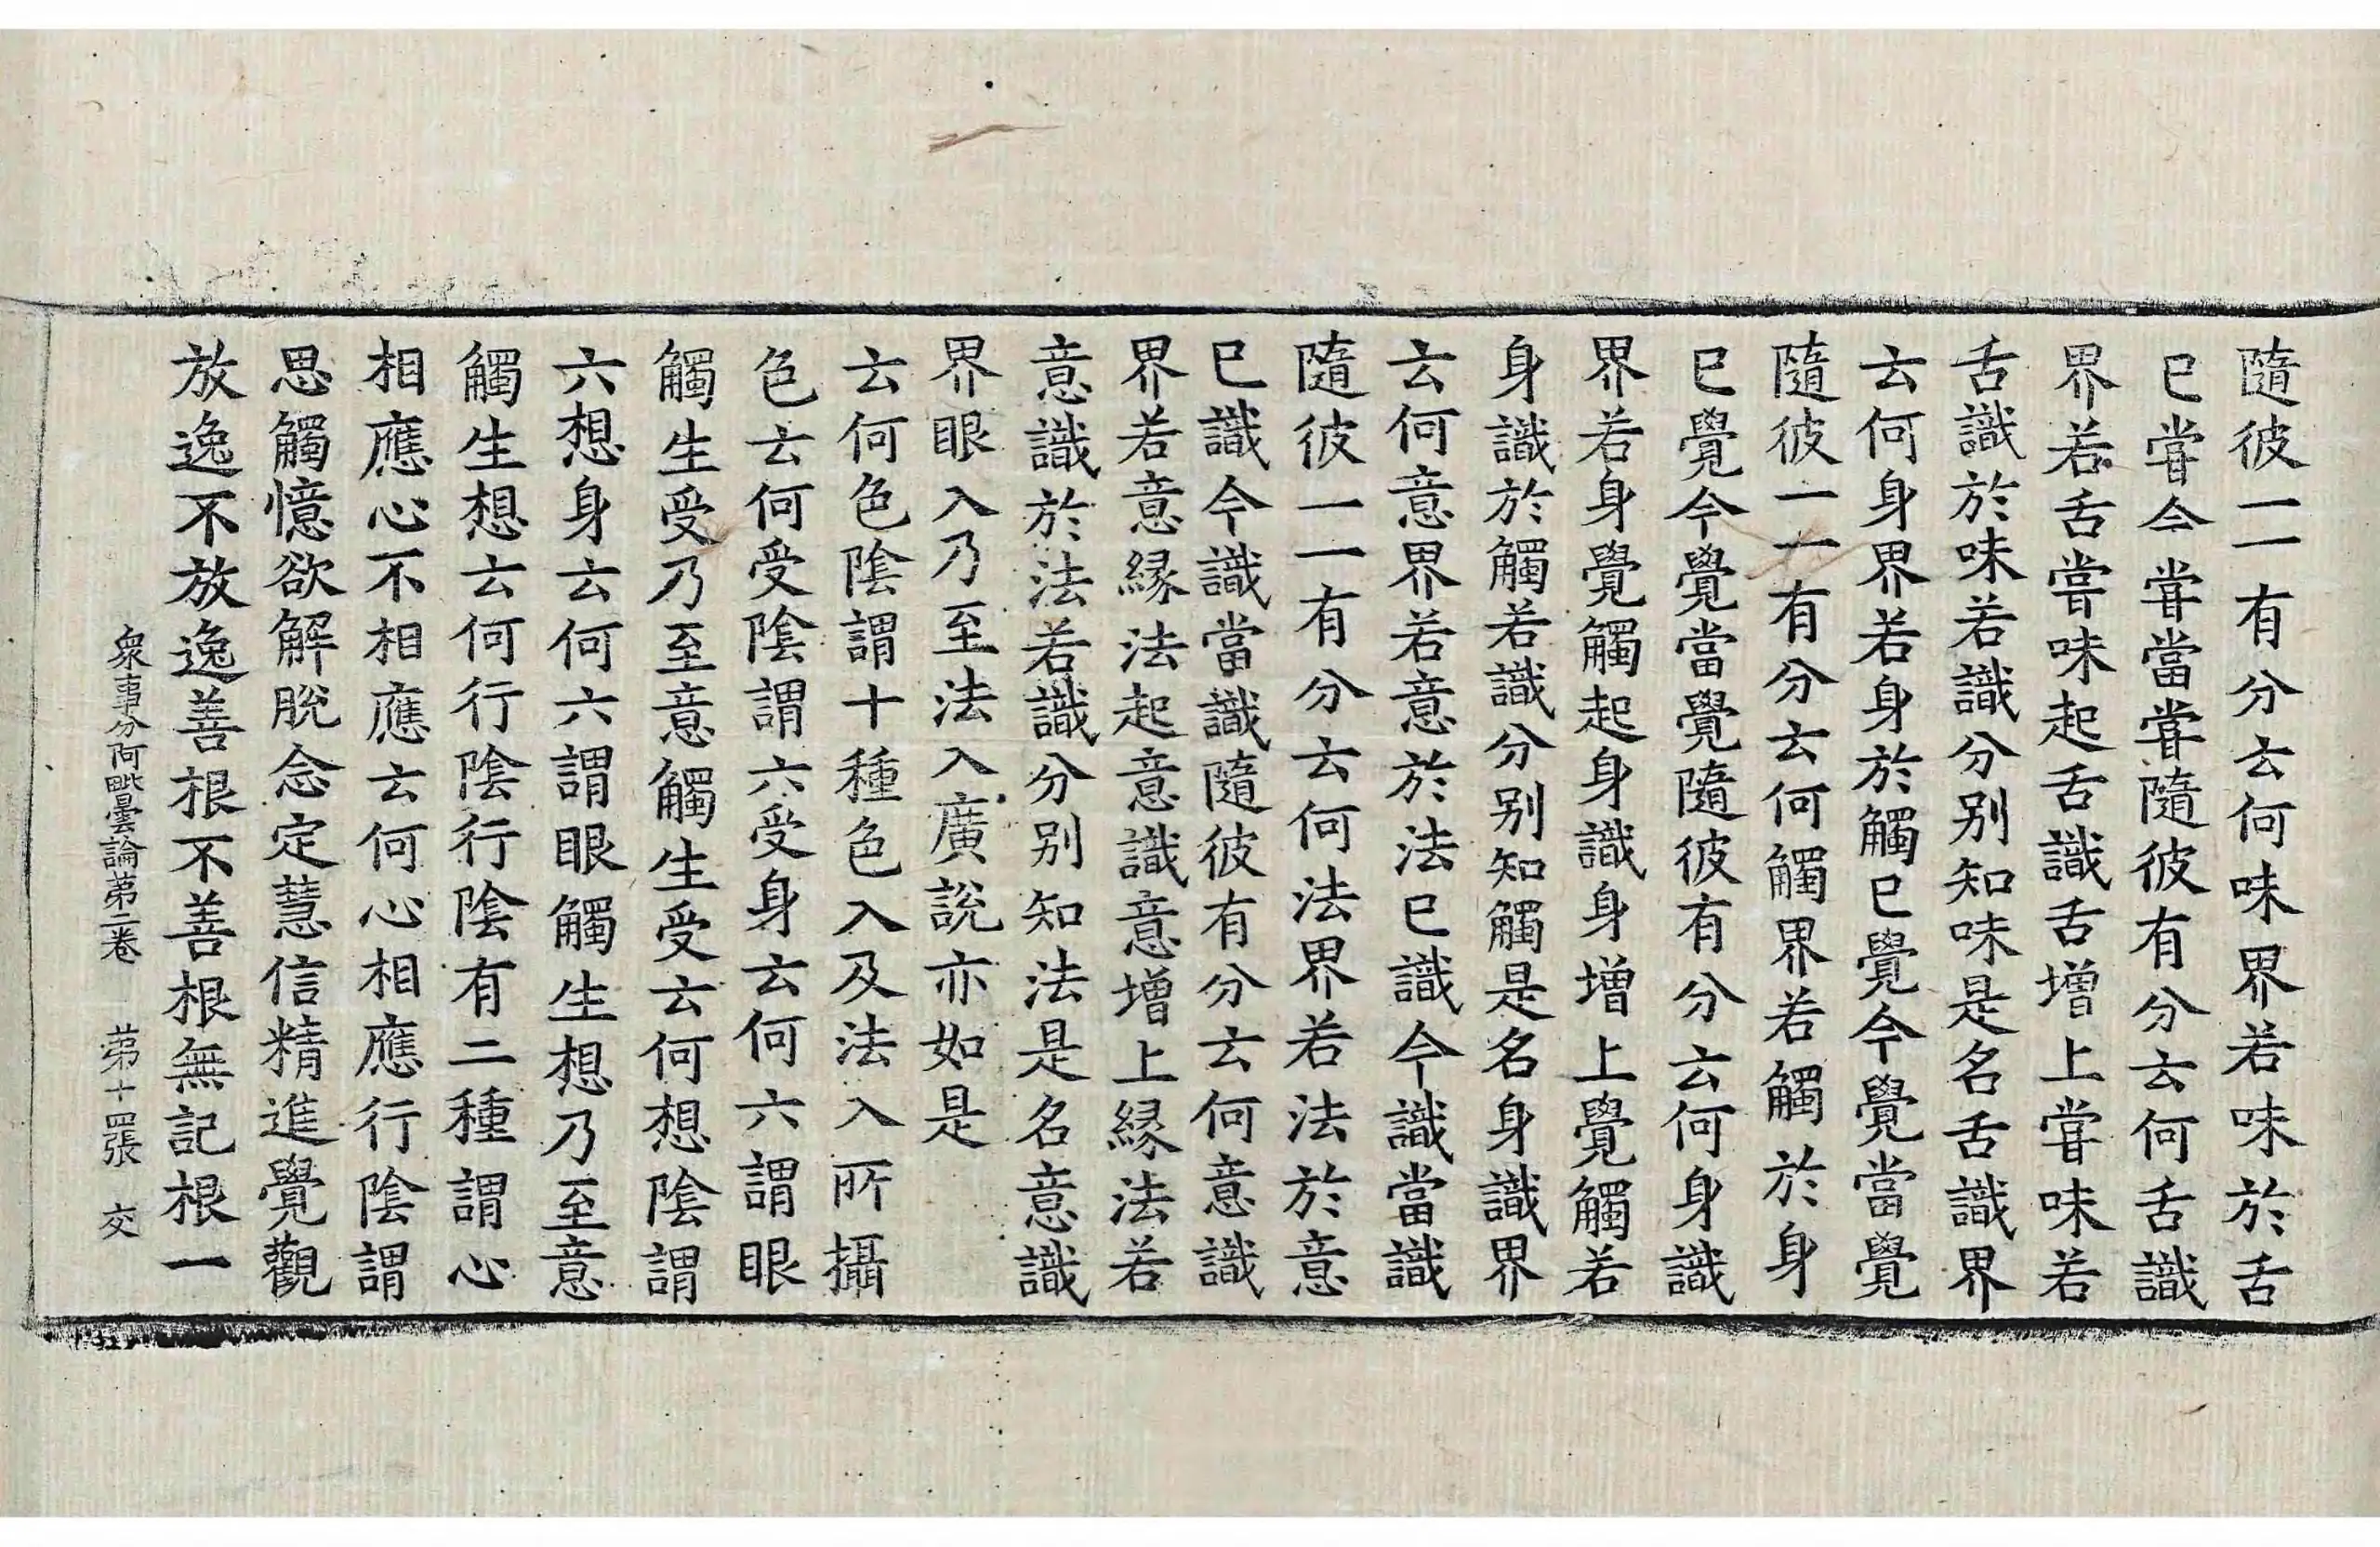 隨彼一一有分云何味界若味於舌
已甞今甞當甞隨彼有分云何舌識
界若舌甞味起舌識舌增上甞味若
舌識於味若識分別知味是名舌識界
云何身界若身於觸已覺今覺當覺
隨彼一一有分云何觸界若觸於身
已覺今覺當覺隨彼有分云何身識
界若身覺觸起身識身增上覺觸若
身識於觸若識分別知觸是名身識界
云何意界若意於法已識今識當識
隨彼一一有分云何法界若法於意
已識今識當識隨彼有分云何意識
界若意緣法起意識意增上緣法若
意識於法若識分別知法是名意識
界眼入乃至法入廣說亦如是
云何色陰謂十種色入及法入所攝
色云何受陰謂六受身云何六謂眼
觸生受乃至意觸生受云何想陰謂
六想身云何六謂眼觸生想乃至意
觸生想云何行陰行陰有二種謂心
相應心不相應云何心相應行陰謂
思觸憶欲解脫念定慧信精進覺觀
放逸不放逸善根不善根無記根一
衆事分阿毗曇論第二卷 第十四張 交